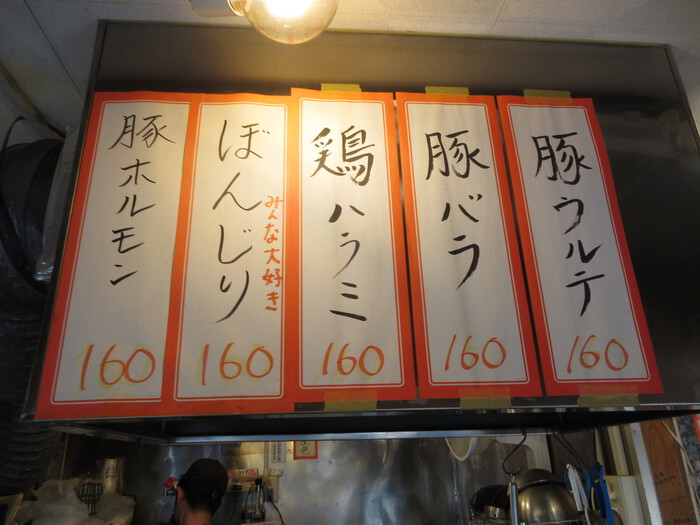 豚ウルテ
160
豚バラ
160
鶏ハラミ
160
ぼんじり
みんな大好き
160
豚ホルモン
160